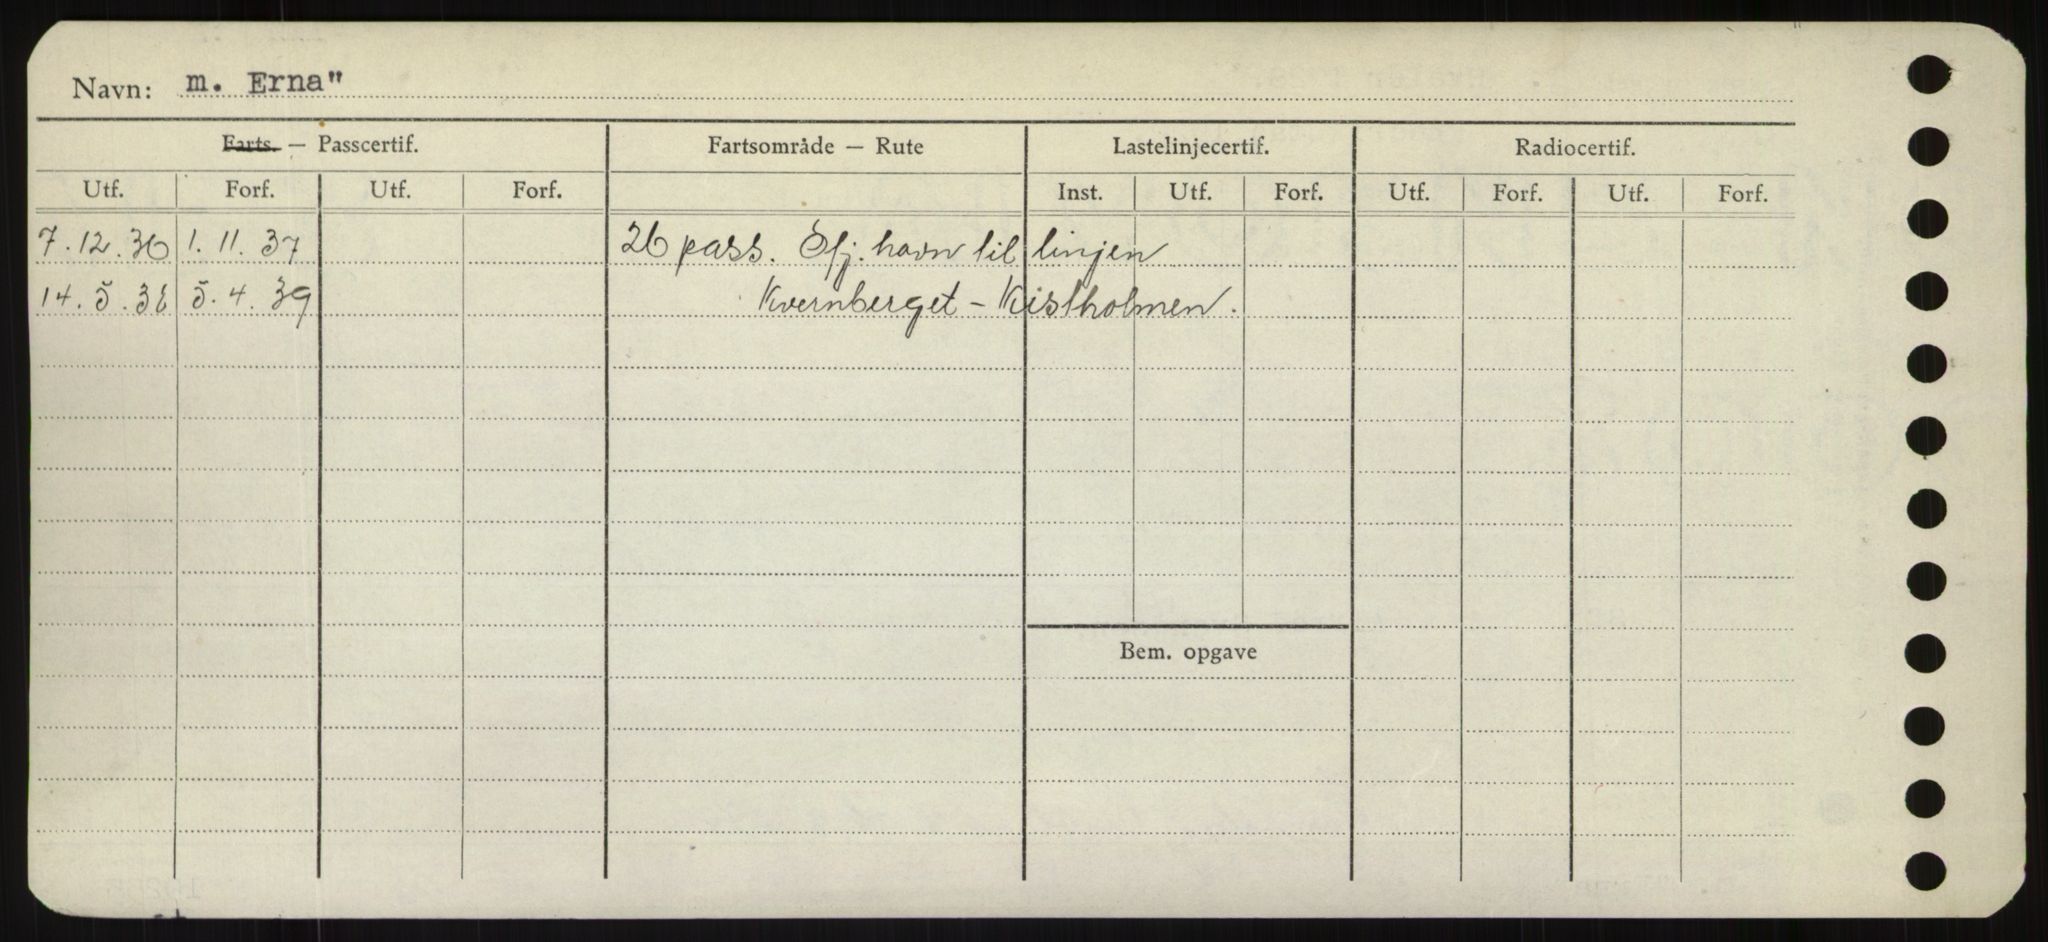 Navn: m. Erna"
Farts. — Passcertif. Fartsområde — Rute Lastelinjecertif. Radiocertif.
Utf. Forf. Utf. Forf. Inst. Utf. Forf. Utf. Forf. Utf. Forf.
7.12.36 1.11.37 26 pass. Sfj. havn til linjen
14.5.38 5.4.39 Kvernberget - Kistholmen.
Bem. opgave